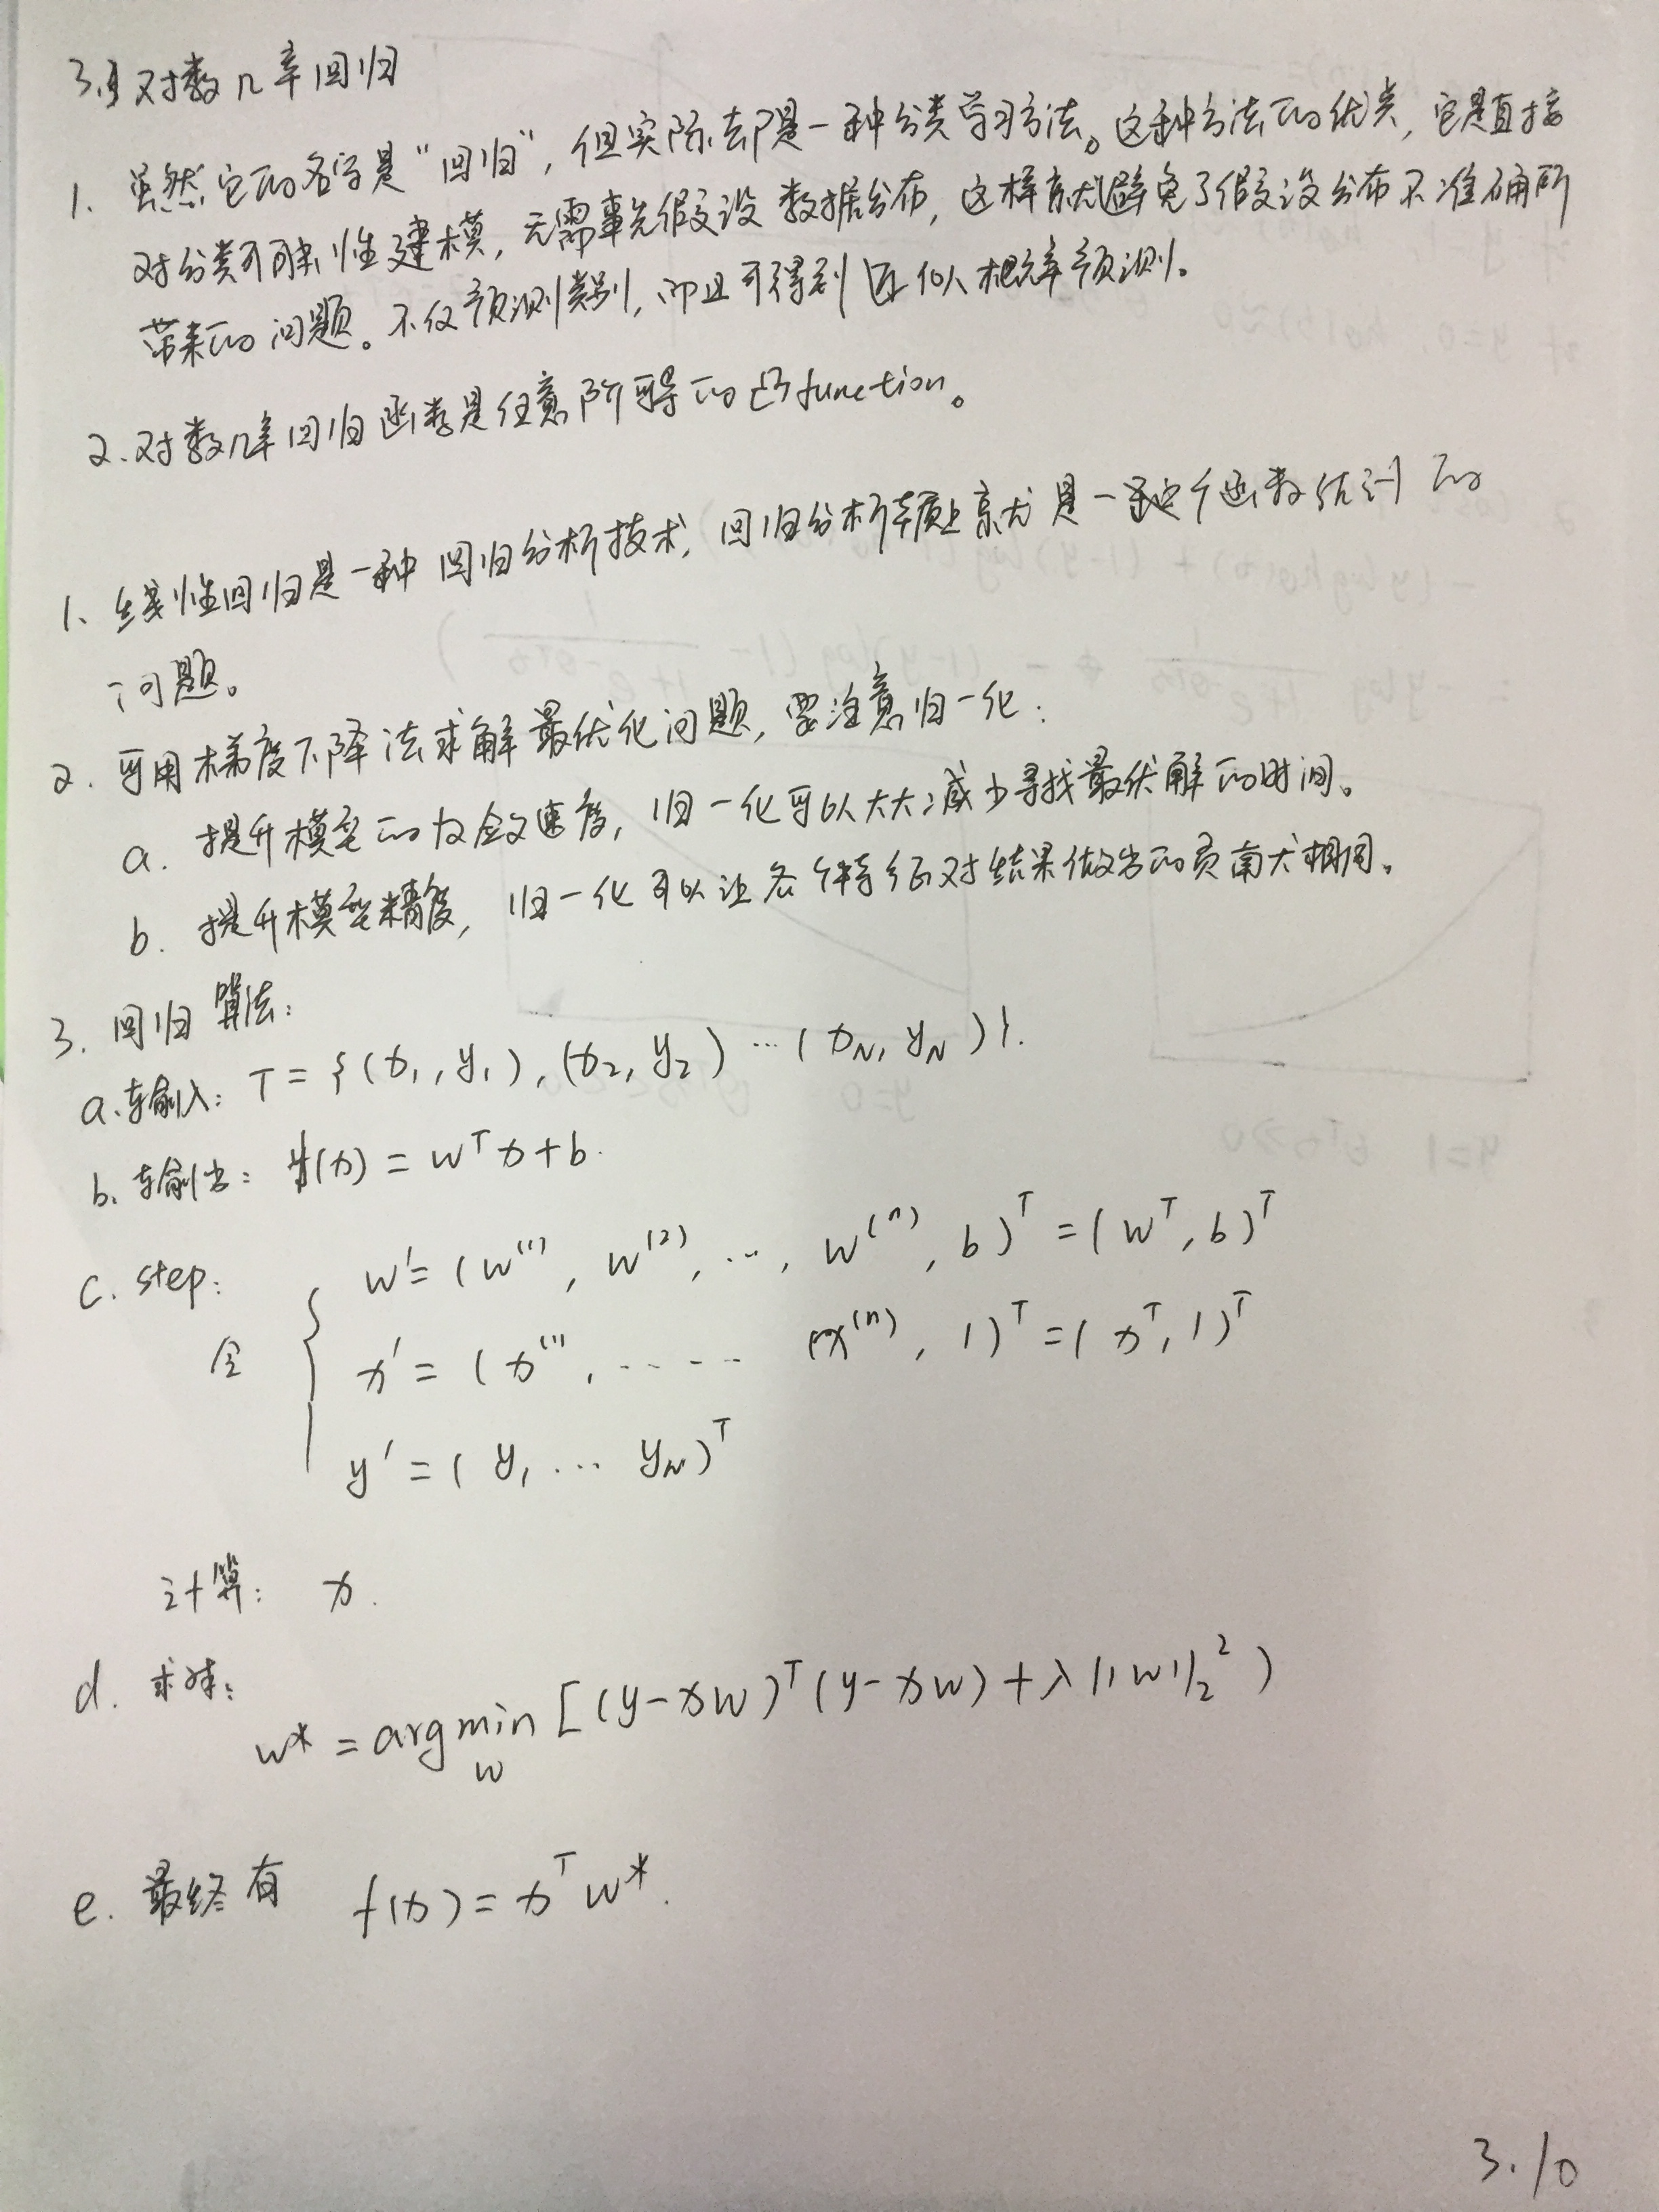 3.3 对数几率回归
1、虽然它的名字是“回归”,但实际却是一种分类学习方法。这种方法的优类,它是直接
对分类可能性建模,无需事先假设数据分布,这样就避免了假设分布不准确所
带来的问题。不仅预测类别,而且可得到近似概率预测。
2.对数几率回归函数是任意阶可导的凸function。
1、线性回归是一种回归分析技术,回归分析本质上就是一个函数估计的
问题。
2.可用梯度下降法求解最优化问题,要注意归一化:
a.提升模型的收敛速度,归一化可以大大减少寻找最优解的时间。
b.提升模型精度,归一化可以让各个特征对结果做出的贡献相同。
3.回归算法:
a.输入:T={(x₁,y₁),(x₂,y₂)…(x_N,y_N)}.
b.输出:f(x)=w^T x+b.
c. step:
w'=(w^(1), w^(2), …, w^(n), b)^T=(w^T, b)^T
令 x'=(x^(1), …… x^(n), 1)^T=(x^T, 1)^T
y'=(y₁ … y_N)^T
计算: x.
d. 求解:
w*=argmin_w [(y-xw)^T(y-xw)+λ||w||₂²)
e. 最终有 f(x)=x^T w*.
3.10